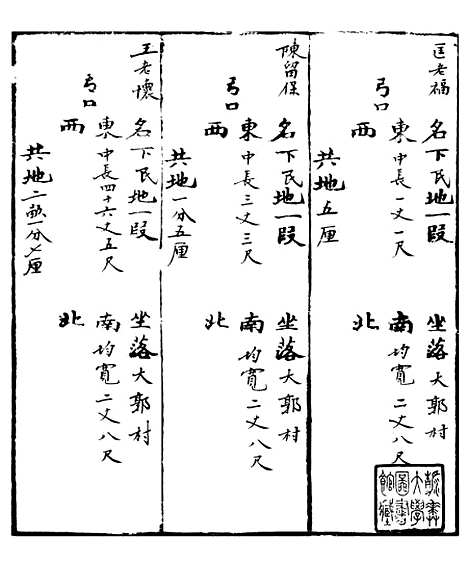 匡老福 名下民地一段 坐落大郭村
弓口 東 中長一丈一尺 南 均寬二丈八尺
西 北
共地五厘
陳留保 名下民地一段 坐落大郭村
弓口 東 中長三丈三尺 南 均寬二丈八尺
西 北
共地一分五厘
王老懷 名下民地一段 坐落大郭村
弓口 東 中長四十六丈五尺 南 均寬二丈八尺
西 北
共地二畝一分七厘
大學
圖書
館藏